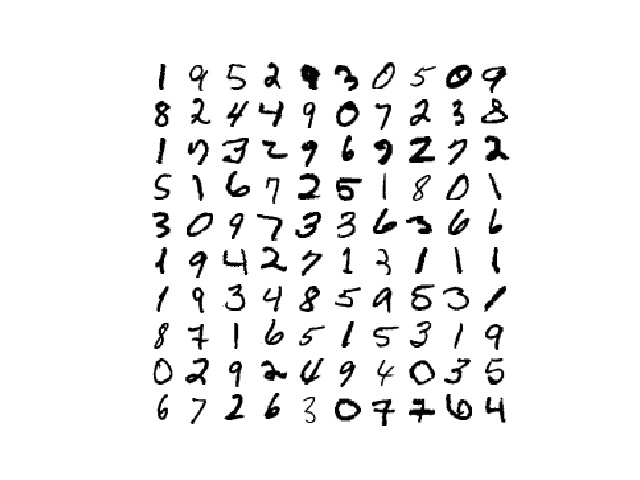 1 9 5 2 9 3 0 5 0 9
8 2 4 4 9 0 7 2 3 8
1 7 3 2 9 6 9 2 7 2
5 1 6 7 2 5 1 8 0 1
3 0 9 7 3 3 6 3 6 6
1 9 4 2 7 1 3 1 1 1
1 9 3 4 8 5 9 5 3 1
8 7 1 6 5 1 5 3 1 9
0 2 9 2 4 9 4 0 3 5
6 7 2 6 3 0 7 7 6 4